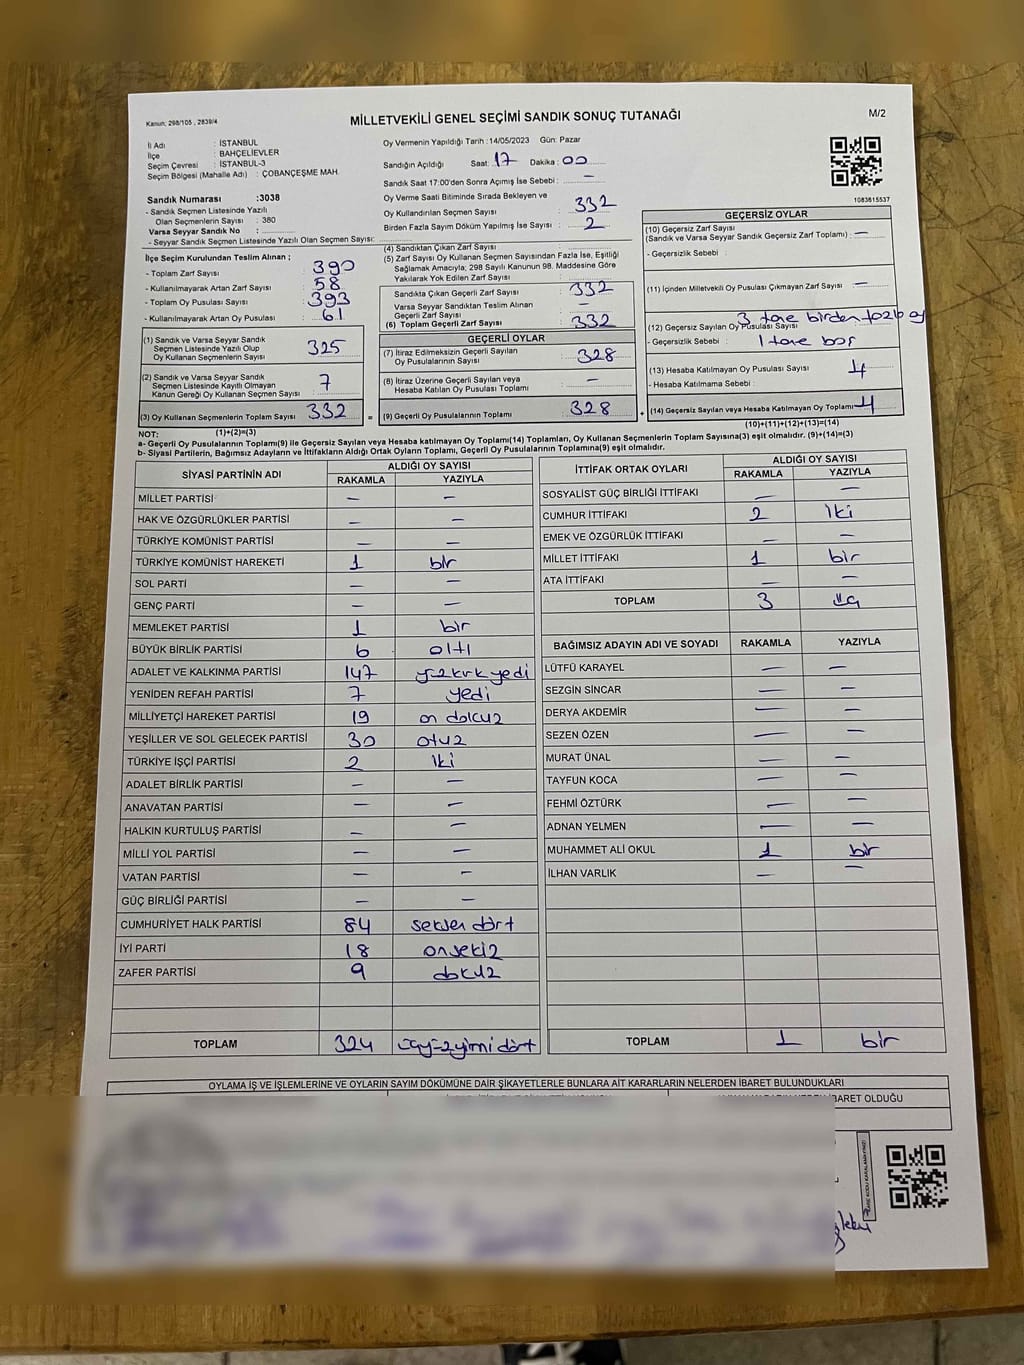 Kanun: 298/105 , 2839/4
MİLLETVEKİLİ GENEL SEÇİMİ SANDIK SONUÇ TUTANAĞI
M/2
İl Adı : İSTANBUL
İlçe : BAHÇELİEVLER
Seçim Çevresi : İSTANBUL-3
Seçim Bölgesi (Mahalle Adı) : ÇOBANÇEŞME MAH.
Sandık Numarası :3038
- Sandık Seçmen Listesinde Yazılı
Olan Seçmenlerin Sayısı : 380
Varsa Seyyar Sandık No :
- Seyyar Sandık Seçmen Listesinde Yazılı Olan Seçmen Sayısı:
İlçe Seçim Kurulundan Teslim Alınan ;
- Toplam Zarf Sayısı : 390
- Kullanılmayarak Artan Zarf Sayısı : 58
- Toplam Oy Pusulası Sayısı : 393
- Kullanılmayarak Artan Oy Pusulası : 61
(1) Sandık ve Varsa Seyyar Sandık
Seçmen Listesinde Yazılı Olup
Oy Kullanan Seçmenlerin Sayısı 325
(2) Sandık ve Varsa Seyyar Sandık
Seçmen Listesinde Kayıtlı Olmayan
Kanun Gereği Oy Kullanan Seçmen Sayısı 7
(3) Oy Kullanan Seçmenlerin Toplam Sayısı 332
Oy Vermenin Yapıldığı Tarih :14/05/2023 Gün: Pazar
Sandığın Açıldığı Saat: 17 Dakika : 00
Sandık Saat 17:00'den Sonra Açımış İse Sebebi : –
Oy Verme Saati Bitiminde Sırada Bekleyen ve
Oy Kullandırılan Seçmen Sayısı : 332
Birden Fazla Sayım Döküm Yapılmış İse Sayısı : 2
(4) Sandıktan Çıkan Zarf Sayısı :
(5) Zarf Sayısı Oy Kullanan Seçmen Sayısından Fazla İse, Eşitliği
Sağlamak Amacıyla; 298 Sayılı Kanunun 98. Maddesine Göre
Yakılarak Yok Edilen Zarf Sayısı :
Sandıkta Çıkan Geçerli Zarf Sayısı : 332
Varsa Seyyar Sandıktan Teslim Alınan
Geçerli Zarf Sayısı : –
(6) Toplam Geçerli Zarf Sayısı : 332
GEÇERLİ OYLAR
(7) İtiraz Edilmeksizin Geçerli Sayılan
Oy Pusulalarının Sayısı : 328
(8) İtiraz Üzerine Geçerli Sayılan veya
Hesaba Katılan Oy Pusulası Toplamı : –
= (9) Geçerli Oy Pusulalarının Toplamı : 328
1083615537
GEÇERSİZ OYLAR
(10) Geçersiz Zarf Sayısı
(Sandık ve Varsa Seyyar Sandık Geçersiz Zarf Toplamı) : –
- Geçersizlik Sebebi :
(11) İçinden Milletvekili Oy Pusulası Çıkmayan Zarf Sayısı : –
3 tane birden fazla oy
(12) Geçersiz Sayılan Oy Pusulası Sayısı :
- Geçersizlik Sebebi : 1 tane boş
(13) Hesaba Katılmayan Oy Pusulası Sayısı : 4
- Hesaba Katılmama Sebebi :
+ (14) Geçersiz Sayılan veya Hesaba Katılmayan Oy Toplamı : 4
NOT: (1)+(2)=(3) (10)+(11)+(12)+(13)=(14)
a- Geçerli Oy Pusulalarının Toplamı(9) ile Geçersiz Sayılan veya Hesaba katılmayan Oy Toplamı(14) Toplamları, Oy Kullanan Seçmenlerin Toplam Sayısına(3) eşit olmalıdır. (9)+(14)=(3)
b- Siyasi Partilerin, Bağımsız Adayların ve İttifakların Aldığı Ortak Oyların Toplamı, Geçerli Oy Pusulalarının Toplamına(9) eşit olmalıdır.
SİYASİ PARTİNİN ADI ALDIĞI OY SAYISI
RAKAMLA YAZIYLA
MİLLET PARTİSİ – –
HAK VE ÖZGÜRLÜKLER PARTİSİ – –
TÜRKİYE KOMÜNİST PARTİSİ – –
TÜRKİYE KOMÜNİST HAREKETİ 1 bir
SOL PARTİ – –
GENÇ PARTİ – –
MEMLEKET PARTİSİ 1 bir
BÜYÜK BİRLİK PARTİSİ 6 altı
ADALET VE KALKINMA PARTİSİ 147 yüzkırkyedi
YENİDEN REFAH PARTİSİ 7 yedi
MİLLİYETÇİ HAREKET PARTİSİ 19 on dokuz
YEŞİLLER VE SOL GELECEK PARTİSİ 30 otuz
TÜRKİYE İŞÇİ PARTİSİ 2 iki
ADALET BİRLİK PARTİSİ – –
ANAVATAN PARTİSİ – –
HALKIN KURTULUŞ PARTİSİ – –
MİLLİ YOL PARTİSİ – –
VATAN PARTİSİ – –
GÜÇ BİRLİĞİ PARTİSİ – –
CUMHURİYET HALK PARTİSİ 84 seksen dört
İYİ PARTİ 18 onsekiz
ZAFER PARTİSİ 9 dokuz
TOPLAM 324 üçyüzyirmi dört
İTTİFAK ORTAK OYLARI ALDIĞI OY SAYISI
RAKAMLA YAZIYLA
SOSYALİST GÜÇ BİRLİĞİ İTTİFAKI – –
CUMHUR İTTİFAKI 2 iki
EMEK VE ÖZGÜRLÜK İTTİFAKI – –
MİLLET İTTİFAKI 1 bir
ATA İTTİFAKI – –
TOPLAM 3 üç
BAĞIMSIZ ADAYIN ADI VE SOYADI RAKAMLA YAZIYLA
LÜTFÜ KARAYEL – –
SEZGİN SİNCAR – –
DERYA AKDEMİR – –
SEZEN ÖZEN – –
MURAT ÜNAL – –
TAYFUN KOCA – –
FEHMİ ÖZTÜRK – –
ADNAN YELMEN – –
MUHAMMET ALİ OKUL 1 bir
İLHAN VARLIK – –
TOPLAM 1 bir
OYLAMA İŞ VE İŞLEMLERİNE VE OYLARIN SAYIM DÖKÜMÜNE DAİR ŞİKAYETLERLE BUNLARA AİT KARARLARIN NELERDEN İBARET BULUNDUKLARI
İBARET OLDUĞU